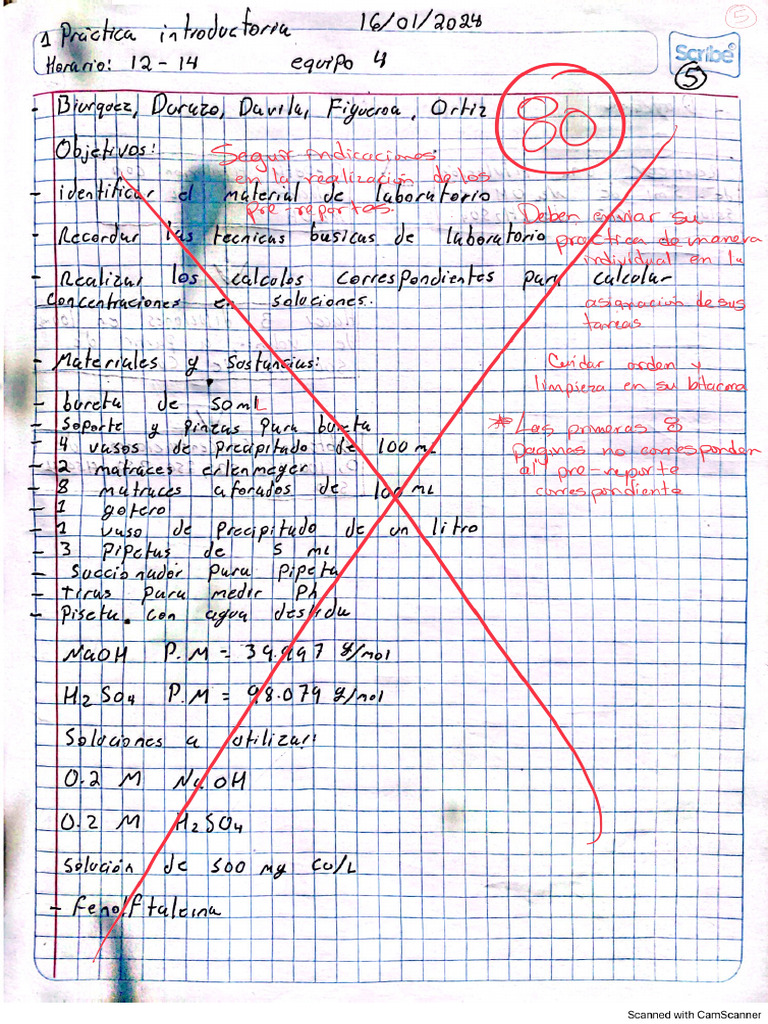 5
1 Práctica introductoria 16/01/2024
Horario: 12-14 equipo 4
Scribe
5
- Biurquez, Durazo, Davila, Figueroa, Ortiz
80
Objetivos:
Seguir indicaciones
en la realización de los
pre-reportos.
- identificar el material de laboratorio
Deben enviar su
práctica de manera
individual en la
asignación de sus
tareas
- Recordar las tecnicas basicas de laboratorio
- Realizar los calculos correspondientes para calcular
concentraciones en soluciones.
Cuidar orden y
limpieza en su bitacora
* Las primeras 8
paginas no corresponden
al pre-reporte
correspondiente
- Materiales y Sostancias:
- bureta de 50mL
- soporte y pinzas para bureta
- 4 vasos de precipitado de 100 mL
- 2 matraces erlenmeyer
- 8 matraces aforados de 100 mL
- 1 gotero
- 1 vaso de precipitado de un litro
- 3 pipetas de 5 mL
- Succionador para pipeta
- tiras para medir Ph
- Piseta con agua destida
NaOH P.M = 39.997 g/mol
H2SO4 P.M = 98.079 g/mol
Soluciones a utilizar:
0.2 M NaOH
0.2 M H2SO4
Solución de 500 mg Cu/L
- fenolftaleina
Scanned with CamScanner